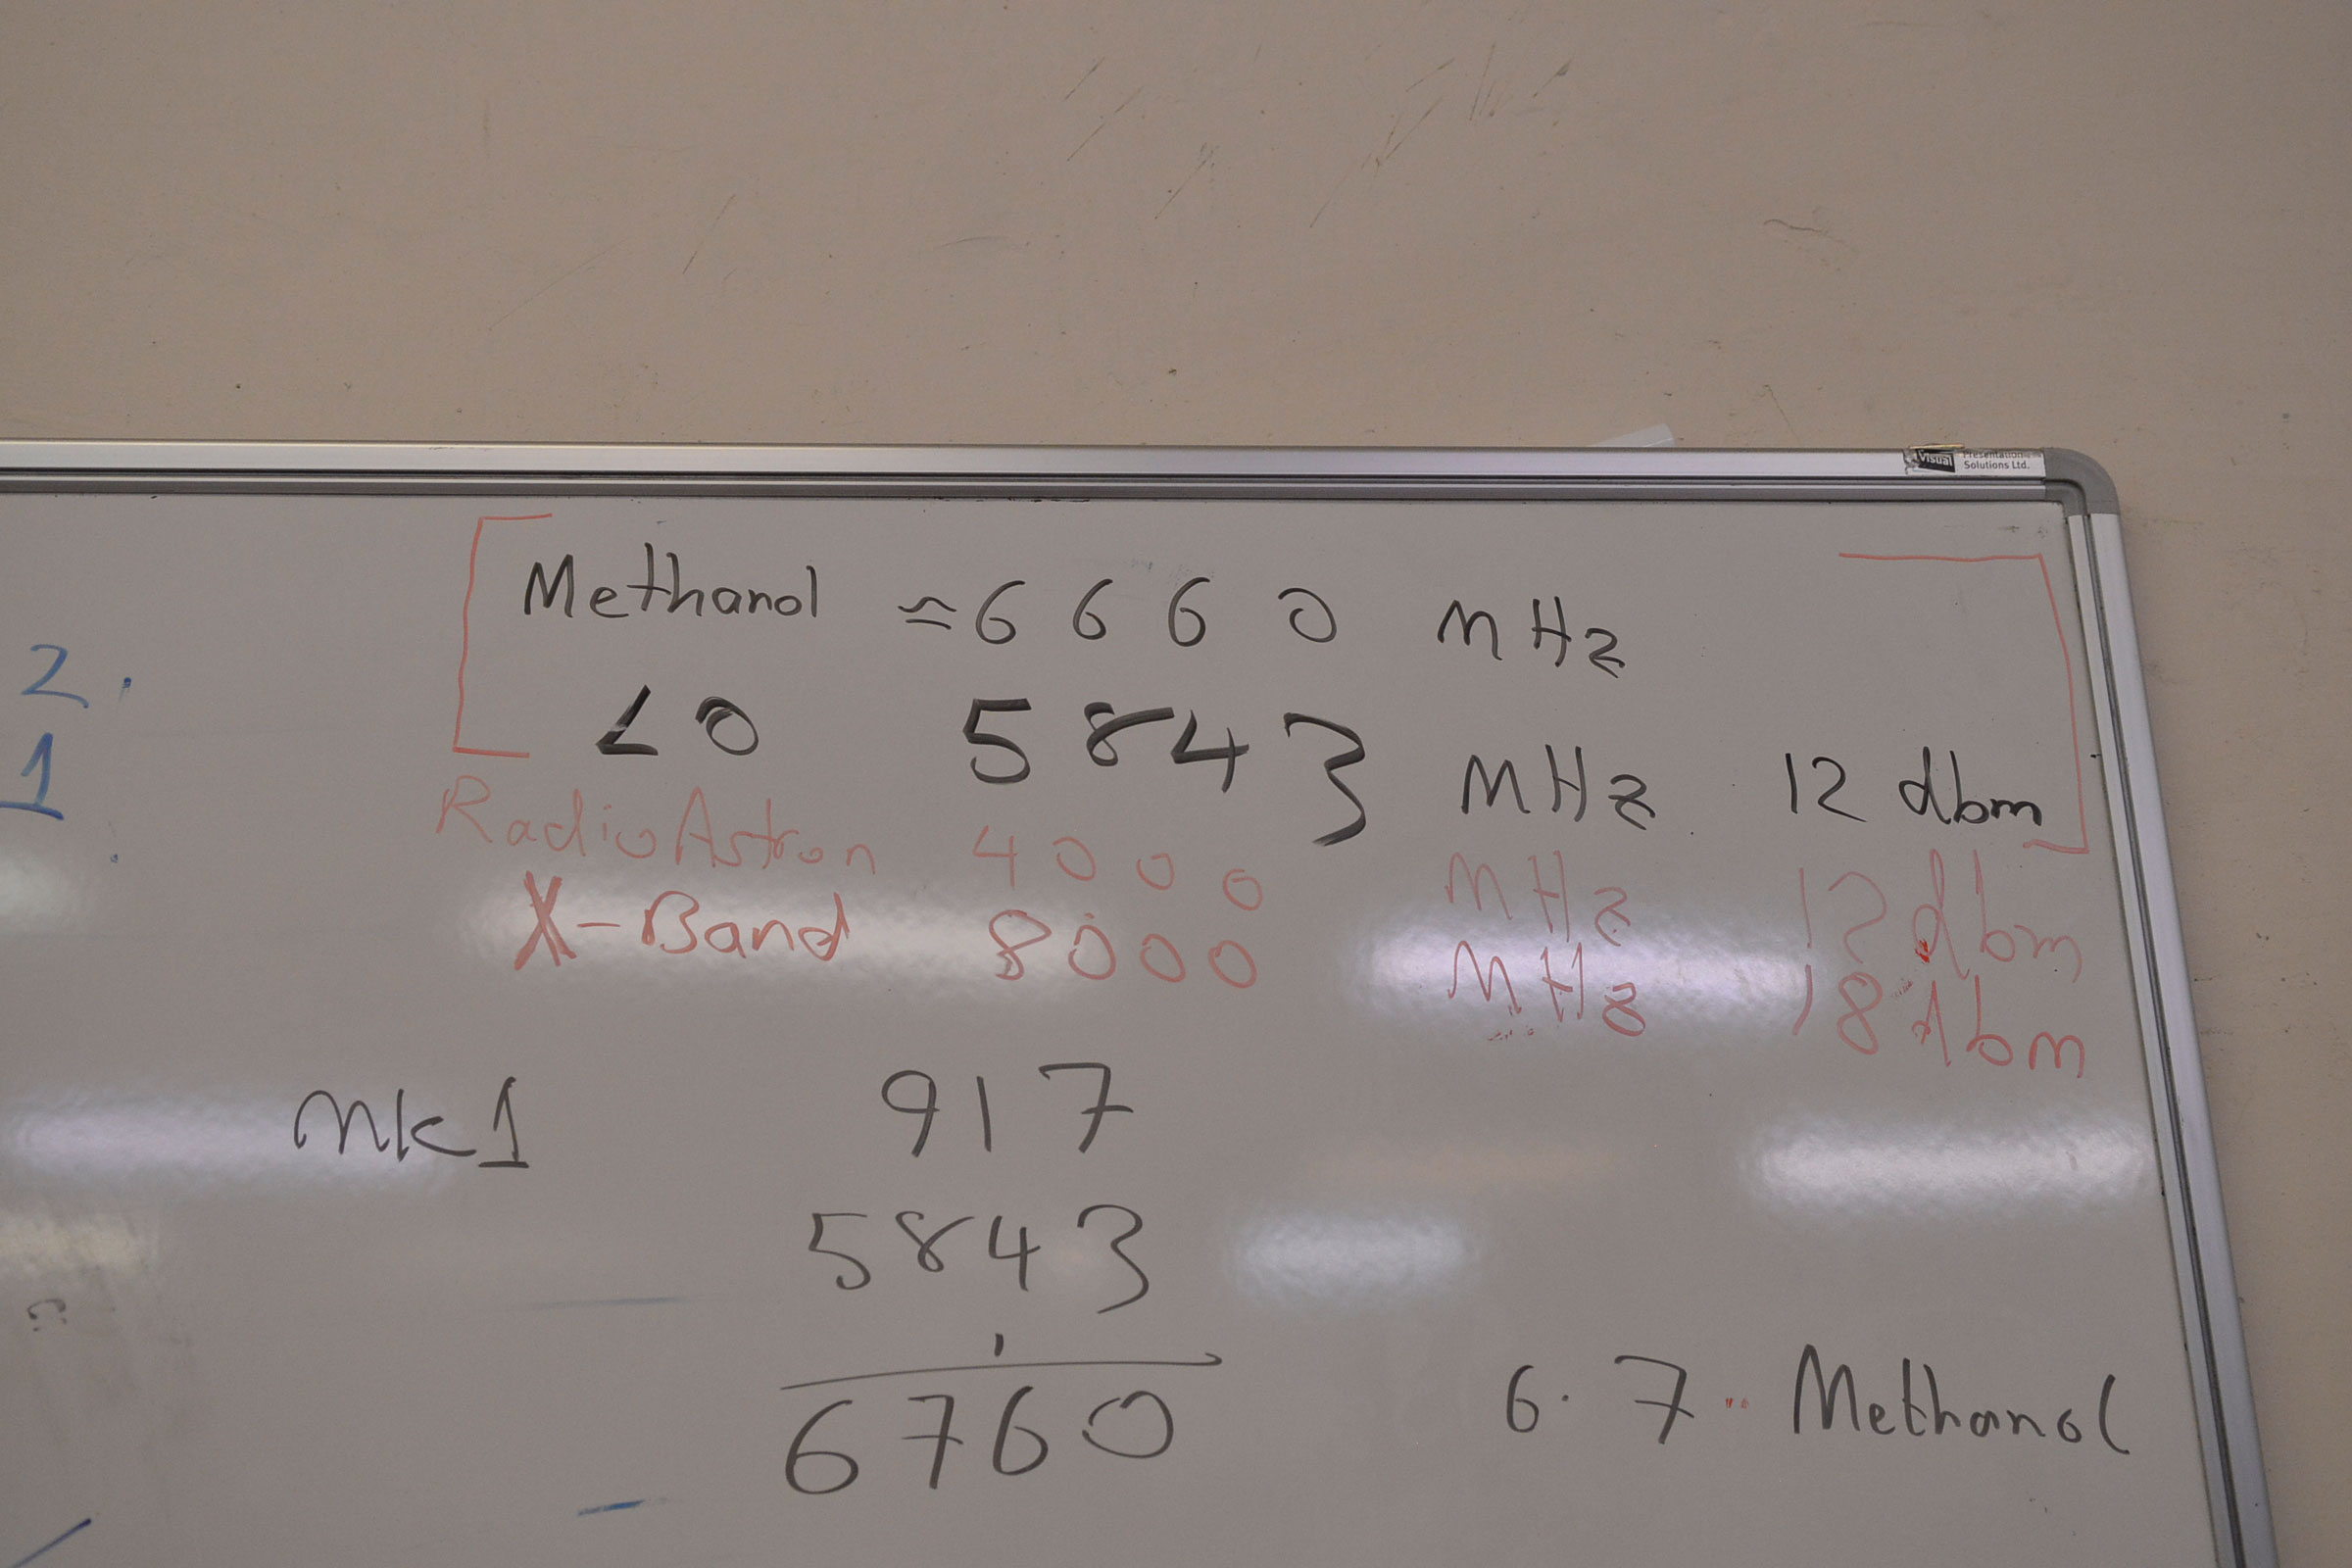 Visual Presentation
Solutions Ltd.
Methanol ≈ 6660 MHz
2.
LO 5843 MHz 12 dbm
1
RadioAstron 4000 MHz 12 dbm
X-Band 8000 MHz 18 dbm
mk1 917
5843
6760
6.7 Methanol